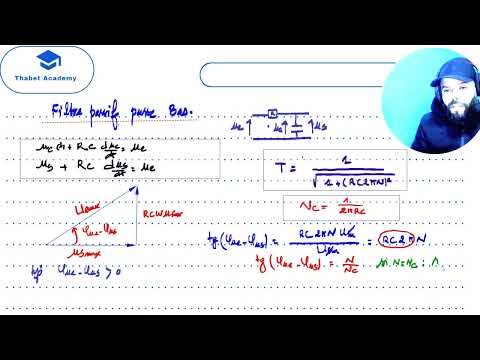 Thabet Academy
Filtre passif passe Bas.
uc(t) + RC duc/dt = ue
us + RC dus/dt = ue
ue
R
us
T = 1/√(1+(RC2πN)²)
Nc = 1/2πRC
Uemax
RCWUsmax
φue-φus
Usmax
tg(φue-φus) = RC2πN Usm/Usm = RC2πN
tg(φue-φus) = N/Nc
si N=Nc : 1
tjs φue-φus > 0